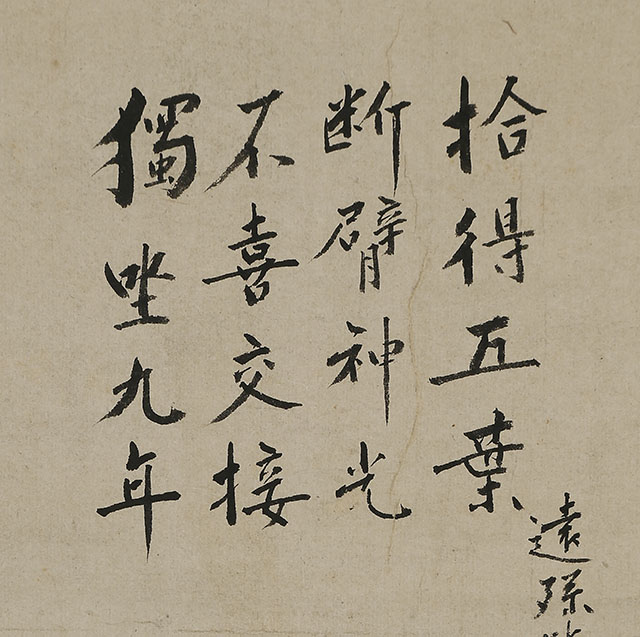 獨坐九年
不喜交接
断臂神光
拾得五葉
遠孫